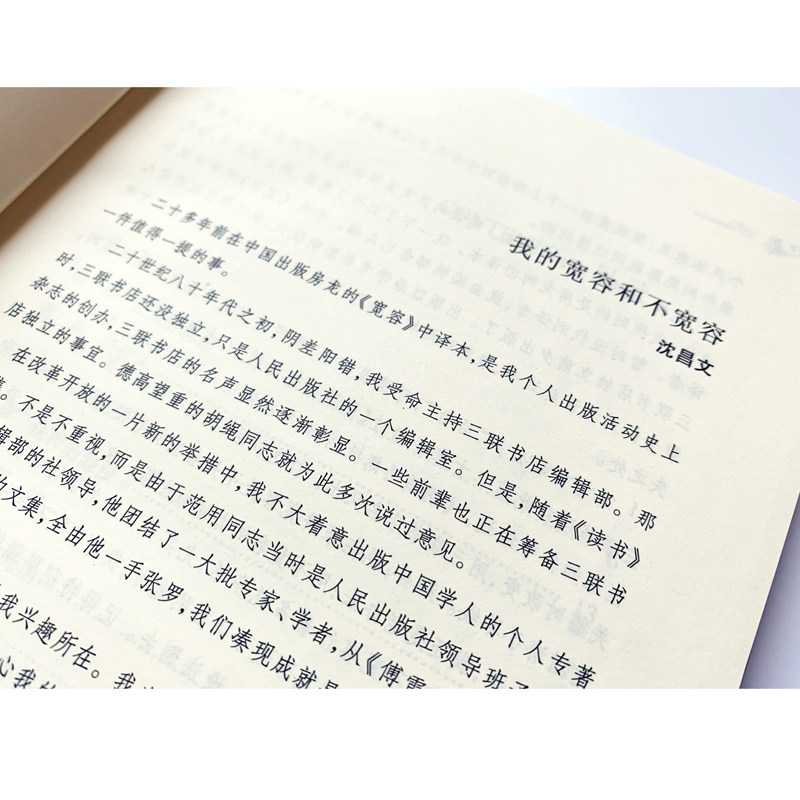 我的宽容和不宽容
沈昌文
二十多年前在中国出版房龙的《宽容》中译本，是我个人出版活动史上
一件值得一提的事。
二十世纪八十年代之初，阴差阳错，我受命主持三联书店编辑部。那
时，三联书店还没独立，只是人民出版社的一个编辑室。但是，随着《读书》
杂志的创办，三联书店的名声显然逐渐彰显。一些前辈也正在筹备三联书
店独立的事宜。德高望重的胡绳同志就为此多次说过意见。
在改革开放的一片新的举措中，我不大着意出版中国学人的个人专著
。不是不重视，而是由于范用同志当时是人民出版社领导班子
辑部的社领导，他团结了一大批专家、学者，从《傅雷
文集，全由他一手张罗，我们凑现成就是
我兴趣所在。我
心我